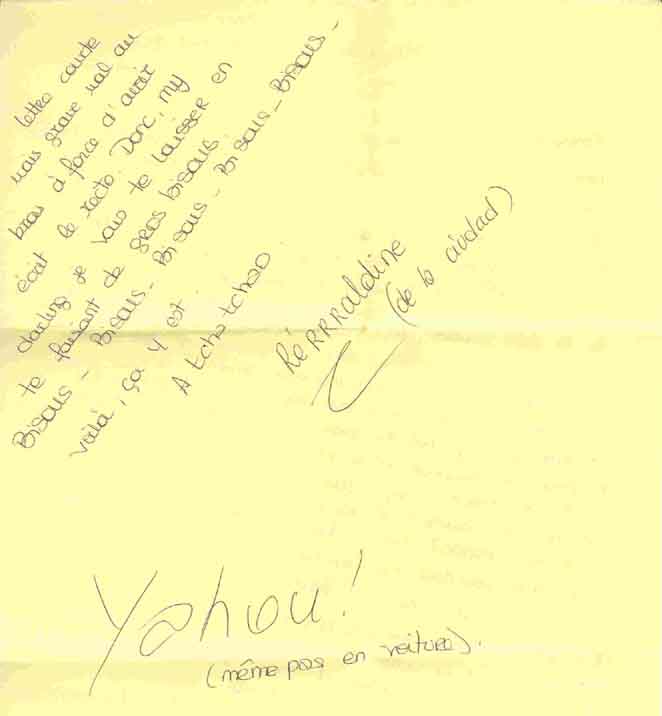 lettre courte
mais grave mal au
bras à force d'avoir
écrit le recto. Donc, my
darling je vais te laisser en
te faisant de gros bisous.
Bisous - Bisous - Bisous - Bisous - Bisous -
voilà, ça y est.
A tchatchao
RéRRRaldine
(de la ciudad)
Yahou!
(même pas en voiture).